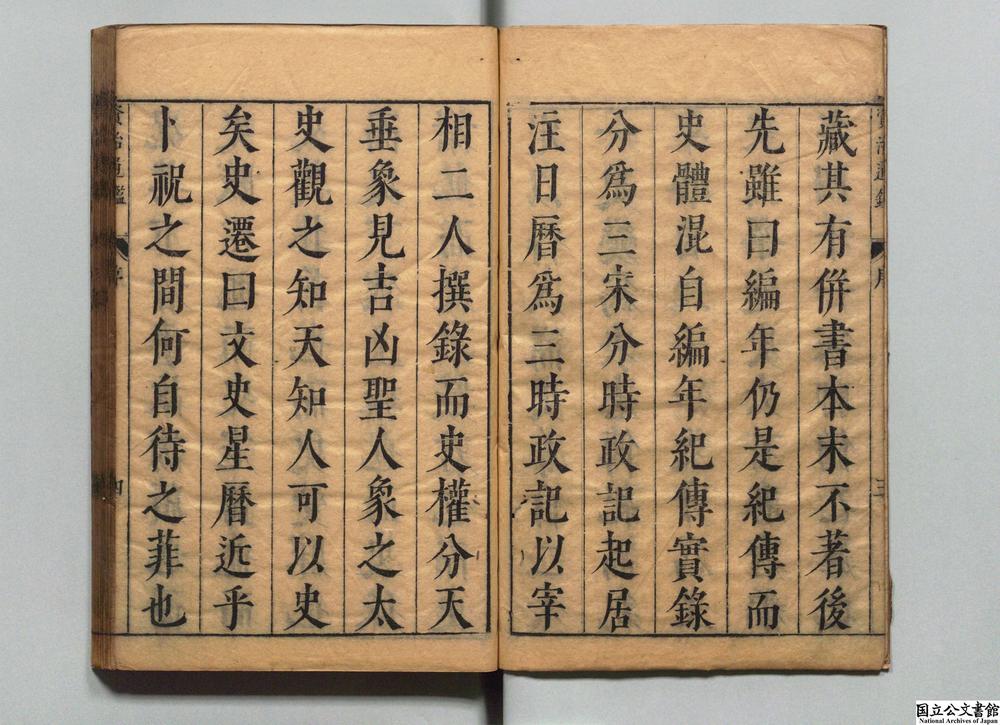 藏其有併書本末不著後
先雖曰編年仍是紀傳而
史體混自編年紀傳實錄
分爲三宋分時政記起居
注日曆爲三時政記以宰
相二人撰錄而史權分天
垂象見吉凶聖人象之太
史觀之知天知人可以史
矣史遷曰文史星曆近乎
卜祝之間何自待之菲也
資治通鑑
序
四
国立公文書館
National Archives of Japan